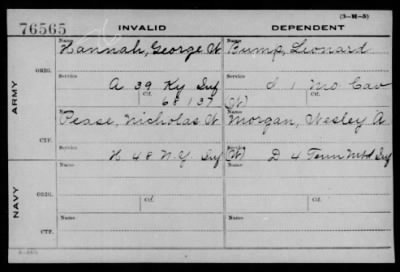 (3-M-5)
76565 INVALID DEPENDENT
Name Name
Hannah, George W Bump, Leonard
ORIG.
Service Service
A 39 Ky Inf I 1 Mo Cav
Ctf. Ctf.
68137 (W)
ARMY
Name Name
Pease, Nicholas W Morgan, Wesley A
CTF.
Service Service
H 48 N.Y. Inf (W) D 4 Tenn Mtd Inf
Name Name
ORIG.
Ctf. Ctf.
NAVY
Name Name
CTF.